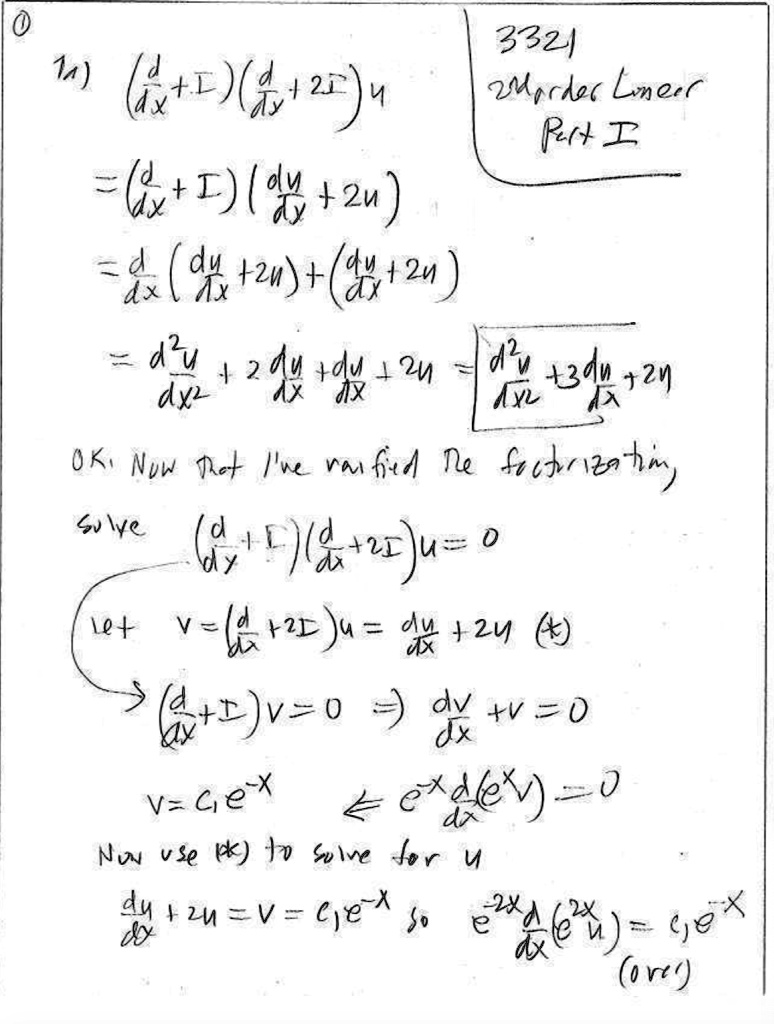 ①
3321
2nd order Linear
Part I
1a) (d/dx + I)(d/dx + 2I)u
= (d/dx + I)(du/dx + 2u)
= d/dx (du/dx + 2u) + (du/dx + 2u)
= d²u/dx² + 2 du/dx + du/dx + 2u = d²u/dx² + 3 du/dx + 2u
OK. Now that I've varified the factorization,
solve (d/dx + I)(d/dx + 2I)u = 0
Let v = (d/dx + 2I)u = du/dx + 2u (*)
(d/dx + I)v = 0 ⇒ dv/dx + v = 0
v = c₁e^-x ⇐ e^-x d/dx(e^x v) = 0
Now use (*) to solve for u
du/dx + 2u = v = c₁e^-x so e^-2x d/dx(e^2x u) = c₁e^-x
(over)